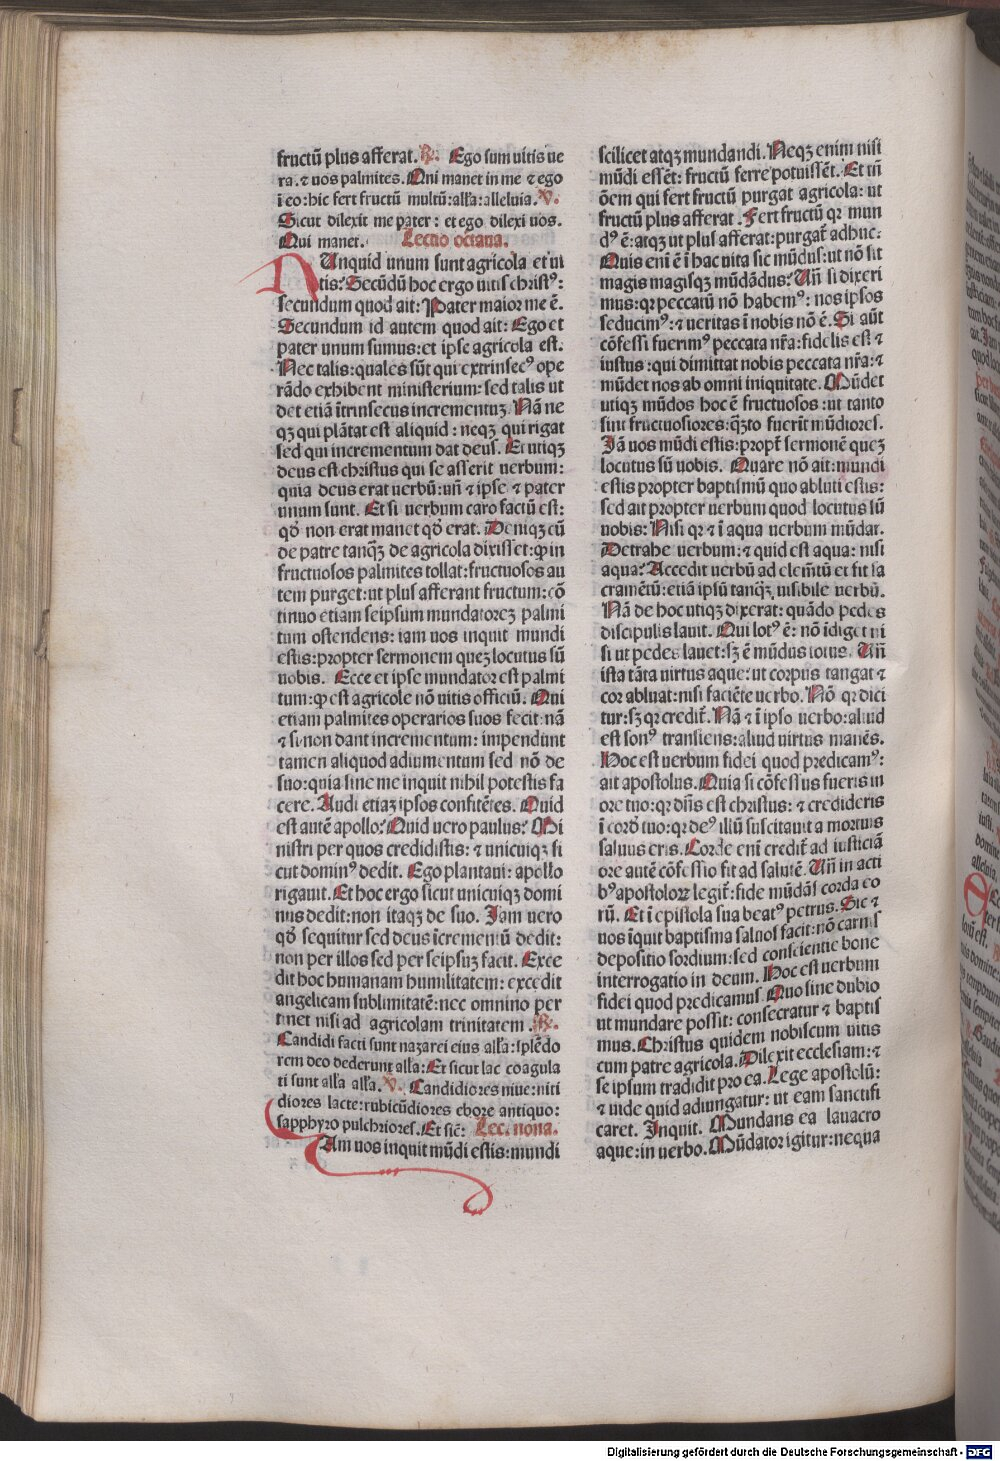 fructū plus afferat. ℟. Ego sum uitis ue
ra. ⁊ uos palmites. Qui manet in me ⁊ ego
ī eo: hic fert fructū multū: alľa: alleluia. ℣.
Sicut dilexit me pater: et ego dilexi uos.
Qui manet. Lectio octaua.
NUnquid unum sunt agricola et ui
tis? Secūdū hoc ergo uitis christꝰ:
secundum quod ait: Pater maior me ē.
Secundum id autem quod ait: Ego et
pater unum sumus: et ipse agricola est.
Nec talis: quales sūt qui extrinsecꝰ ope
rādo exhibent ministerium: sed talis ut
det etiā ītrinsecus incrementuꝫ. Nā ne
qꝫ qui plātat est aliquid: neqꝫ qui rigat
sed qui incrementum dat deus. Et utiqꝫ
deus est christus qui se asserit uerbum:
quia deus erat uerbū: uñ ⁊ ipse ⁊ pater
unum sunt. Et si uerbum caro factū est:
qđ non erat manet qđ erat. Deniqꝫ cū
de patre tanqꝫ̄ de agricola dixisset: ꝙ in
fructuosos palmites tollat: fructuosos au
tem purget: ut plus afferant fructum: cō
tinuo etiam seipsum mundatoreꝫ palmi
tum ostendens: iam uos inquit mundi
estis: propter sermonem queꝫ locutus sū
uobis. Ecce et ipse mundator est palmi
tum: ꝙ est agricole nō uitis officiū. Qui
etiam palmites operarios suos fecit: nā
⁊ si non dant incrementum: impendunt
tamen aliquod adiumentum sed nō de
suo: quia sine me inquit nihil potestis fa
cere. Audi etiaꝫ ipsos confitētes. Quid
est autē apollo? Quid uero paulus? Mi
nistri per quos credidistis: ⁊ unicuiqꝫ si
cut dominꝰ dedit. Ego plantaui: apollo
rigauit. Et hoc ergo sicut unicuiqꝫ domi
nus dedit: non itaqꝫ de suo. Iam uero
qđ sequitur sed deus īcrementū dedit:
non per illos sed per seipsuꝫ facit. Exce
dit hoc humanam humilitatem: excedit
angelicam sublimitatē: nec omnino per
tinet nisi ad agricolam trinitatem. ℟.
Candidi facti sunt nazarei eius alľa: splēdo
rem deo dederunt alľa: Et sicut lac coagula
ti sunt alľa alľa. ℣. Candidiores niue: niti
diores lacte: rubicūdiores ebore antiquo:
sapphyro pulchriores. Et sic̄: Lec. nona.
IAm uos inquit mūdi estis: mundi
scilicet atqꝫ mundandi. Neqꝫ enim nisi
mūdi essēt: fructū ferre potuissēt. Et tñ
ōem qui fert fructū purgat agricola: ut
fructū plus afferat. Fert fructū qꝛ mun
dꝰ ē: atqꝫ ut plus afferat: purgat̄ adhuc.
Quis enī ē ī hac uita sic mūdus: ut nō sit
magis magisqꝫ mūdādus? Uñ si dixeri
mus: qꝛ peccatū nō habemꝰ: nos ipsos
seducimꝰ: ⁊ ueritas ī nobis nō ē. Si aūt
cōfessi fuerimꝰ peccata nr̄a: fidelis est ⁊
iustus: qui dimittat nobis peccata nr̄a: ⁊
mūdet nos ab omni iniquitate. Mūdet
utiqꝫ mūdos hoc ē fructuosos: ut tanto
sint fructuosiores: qꝫ̄to fuerīt mūdiores.
Iā uos mūdi estis: propt̄ sermonē queꝫ
locutus sū uobis. Quare nō ait: mundi
estis propter baptismū quo abluti estis:
sed ait propter uerbum quod locutus sū
uobis: Nisi qꝛ ⁊ ī aqua uerbum mūdat.
Detrahe uerbum: ⁊ quid est aqua: nisi
aqua? Accedit uerbū ad elemētū et fit sa
cramētū: etiā ipsū tanqꝫ̄ uisibile uerbū.
Nā de hoc utiqꝫ dixerat: quādo pedes
discipulis lauit. Qui lotꝰ ē: nō īdiget ni
si ut pedes lauet: sꝫ ē mūdus totus. Uñ
ista tāta uirtus aque: ut corpus tangat ⁊
cor abluat: nisi faciēte uerbo. Nō qꝛ dici
tur: sꝫ qꝛ credit̄. Nā ⁊ ī ipso uerbo: aliud
est sonꝰ transiens: aliud uirtus manēs.
Hoc est uerbum fidei quod predicamꝰ:
ait apostolus. Quia si cōfessus fueris in
ore tuo: qꝛ dñs est christus: ⁊ credideris
ī cordē tuo: qꝛ deꝰ illū suscitauit a mortuis
saluus eris. Corde enī credit̄ ad iusticiā
ore autē cōfessio fit ad salutē. Uñ in acti
bꝰ apostoloꝝ legit̄: fide mūdās corda eo
rū. Et ī epistola sua beatꝰ petrus. Sic ⁊
uos īquit baptisma saluos facit: nō carnis
depositio sordium: sed conscientie bone
interrogatio in deum. Hoc est uerbum
fidei quod predicamus. Quo sine dubio
ut mundare possit: consecratur ⁊ baptis
mus. Christus quidem nobiscum uitis
cum patre agricola. Dilexit ecclesiam: ⁊
se ipsum tradidit pro ea. Lege apostolū:
⁊ uide quid adiungatur: ut eam sanctifi
caret. Inquit. Mundans ea lauacro
aque: in uerbo. Mūdator igitur: nequa
Digitalisierung gefördert durch die Deutsche Forschungsgemeinschaft - DFG